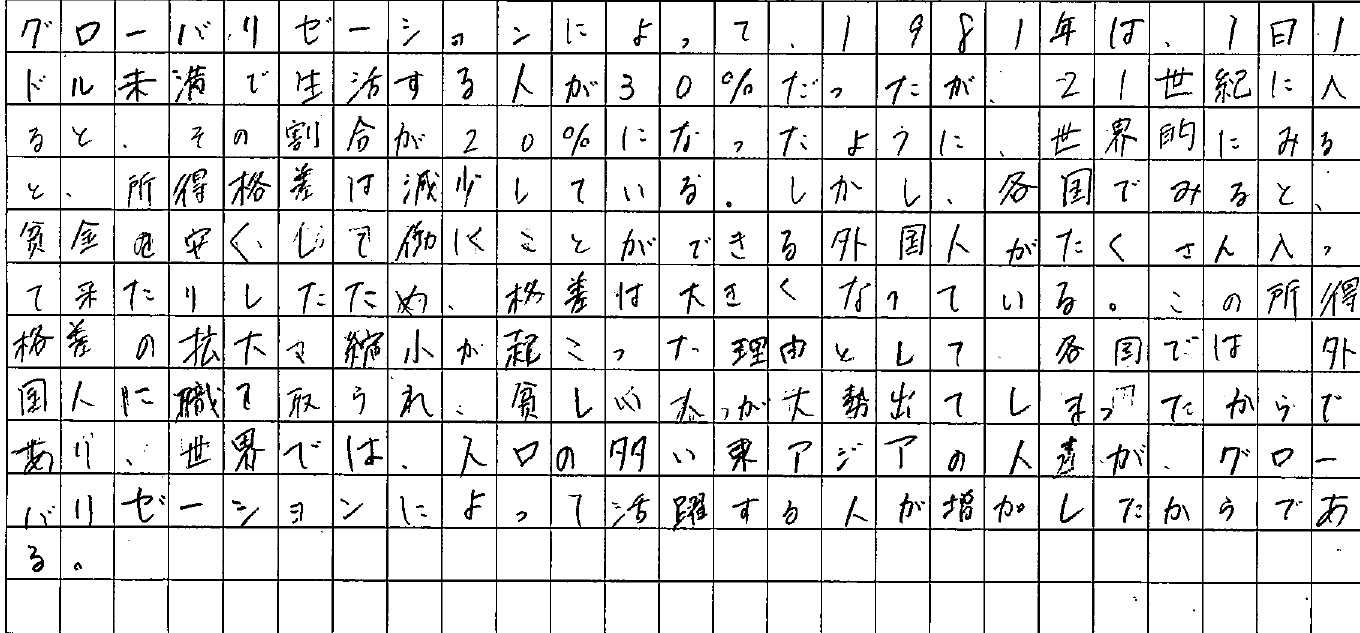 グローバリゼーションによって、1981年は、1日1
ドル未満で生活する人が30%だったが、21世紀に入
ると、その割合が20%になったように、世界的にみる
と、所得格差は減少している。しかし、各国でみると、
賃金を安くして働くことができる外国人がたくさん入っ
て来たりしたため、格差は大きくなっている。この所得
格差の拡大や縮小が起こった理由として、各国では外
国人に職を取られ、貧しい人が大勢出てしまったからで
あり、世界では、人口の多い東アジアの人達が、グロー
バリゼーションによって活躍する人が増加したからであ
る。